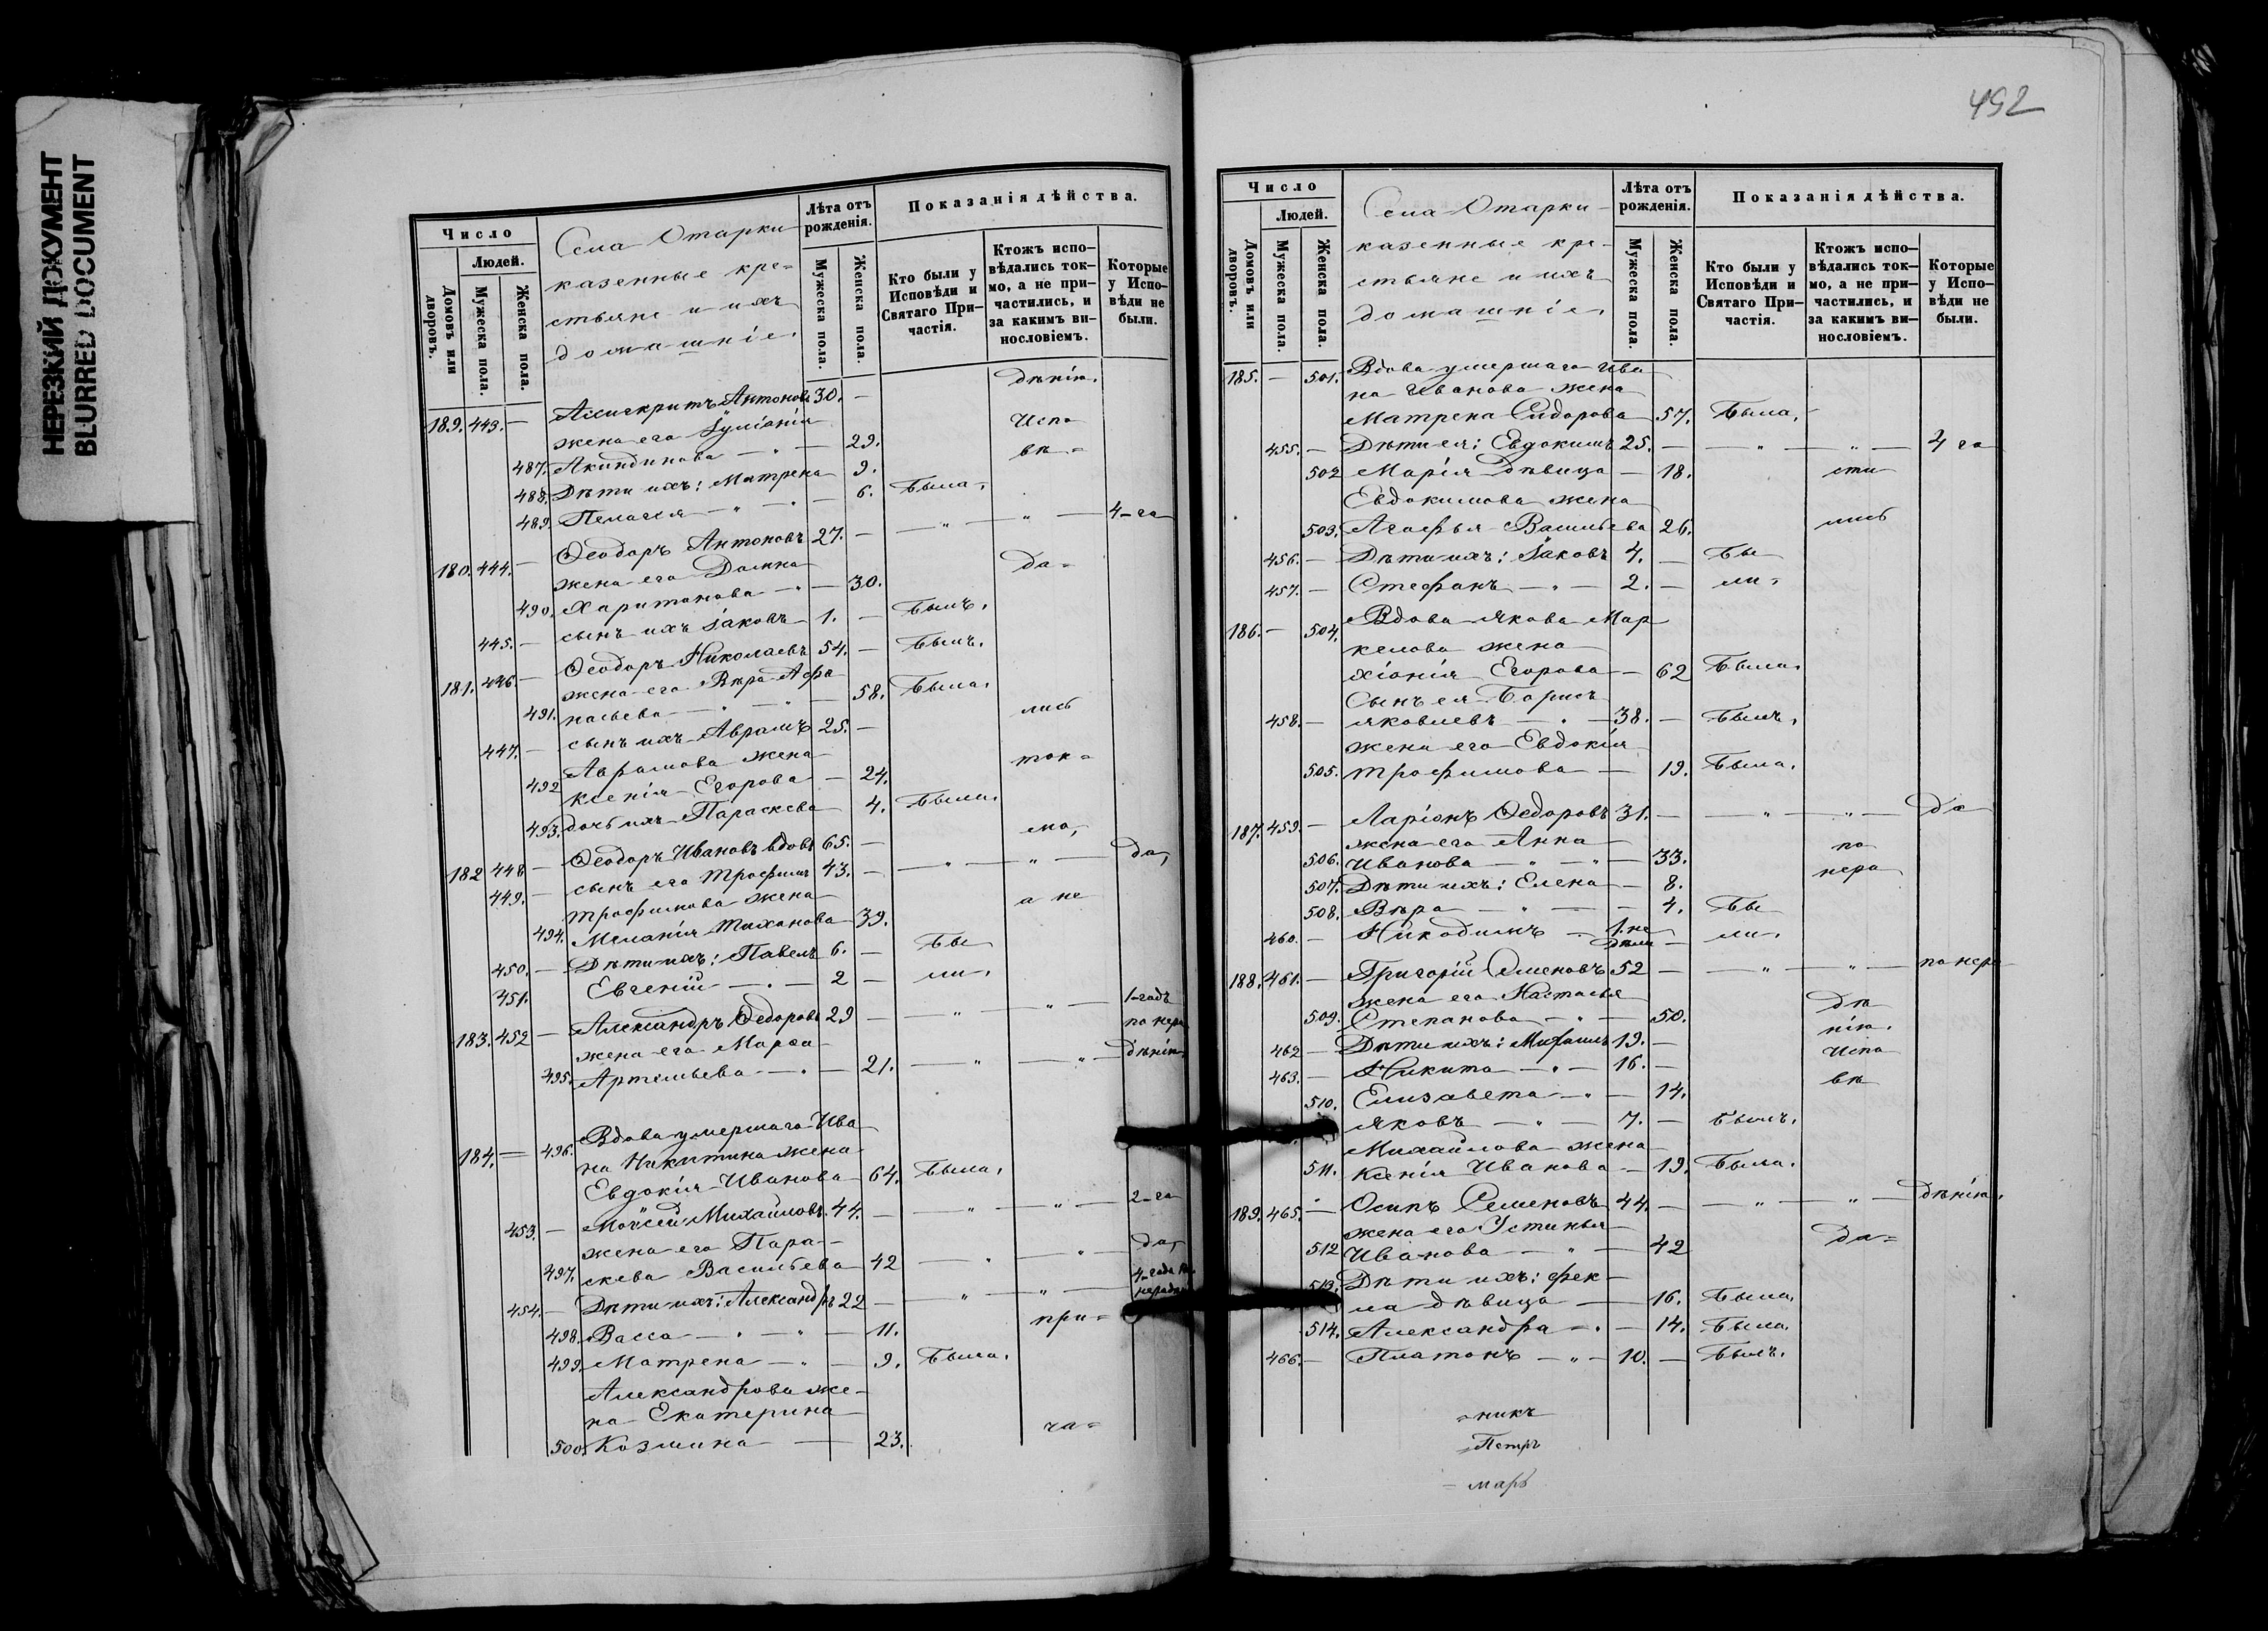 НЕРЕЗКИЙ ДОКУМЕНТ
BLURRED DOCUMENT
Число
Людей.
Домовъ или дворовъ.
Мужеска пола.
Женска пола.
Села Отарки
казенные кре=
стьяне и ихъ
домашніе.
Лѣта отъ рожденія.
Мужеска пола.
Женска пола.
Показанія дѣйства.
Кто были у Исповѣди и Святаго При-частія.
Ктожъ испо-вѣдались ток-мо, а не при-частились, и за какимъ ви-нословіемъ.
Которые у Испо-вѣди не были.
дѣнію.
189. 443. — Ассигкритъ Антоновъ 30. —
жена его Іуліанія Испо
487. Акиндинова — 29. вѣ=
488. Дѣти ихъ: Матрена 9.
489. Пелагея — " — 6. Была,
180. 444. — Ѳеодоръ Антоновъ 27. — — " — " — 4-го
жена его Домна
490. Харитонова — 30. до=
445. — сынъ ихъ Іаковъ 1. — Былъ.
181. 446. — Ѳеодоръ Николаевъ 54. — Былъ.
жена его Вѣра Афа
491. насьева — " — " — 58. Была.
447. — сынъ ихъ Аврамъ 25. — лись
Аврамова жена
492 Ксенія Егорова — 24. ток=
493. дочь ихъ Параскева 4. Была.
182 448 — Ѳеодоръ Ивановъ вдовъ 65. — мо,
449. — сынъ его Трофимъ 43. — — " — " — до,
Трофимова жена
494. Меланія Тихонова 39. а не
450. — Дѣти ихъ: Павелъ 6. — Бы
451. Евгеній — " — 2 — ли.
183. 452 — Александръ Ѳедоровъ 29 — — " — " — 1-годъ
жена его Марѳа по нера
495. Артемьева — " — 21. — " — " — дѣнію
184. = 496. Вдова умершаго Ива
на Никитина жена
Евдокія Иванова 64. Была.
453. — Моѵсей Михайловъ 44. — — " — " — 2-го
жена его Пара-
497. скева Васильева 42 — " — " — до,
454. — Дѣти ихъ: Александръ 22 — — " — " — 4-года по
498. Васса — " — " — 11. при=
499. Матрена — " — 9. Была.
Александрова же-
на Екатерина
500. Козмина — 23. ча=
492
Число
Людей.
Домовъ или дворовъ.
Мужеска пола.
Женска пола.
Села Отарки
казенные кре-
стьяне и ихъ
домашніе.
Лѣта отъ рожденія.
Мужеска пола.
Женска пола.
Показанія дѣйства.
Кто были у Исповѣди и Святаго При-частія.
Ктожъ испо-вѣдались ток-мо, а не при-частились, и за какимъ ви-нословіемъ.
Которые у Испо-вѣди не были.
185. — 501. Вдова умершаго Ива
на Иванова жена
Матрена Сидорова 57. Была.
455. — Дѣти ея: Евдокимъ 25. — — " — " — 4 го
502 Марія дѣвица — 18. сти
Евдокимова жена
503. Агафья Васильева 26. лись
456. — Дѣти ихъ: Іаковъ 4. — Бы
457. — Стефанъ — " — 2. — ли.
186. — 504. Вдова Якова Мар
келова жена
Хіонія Егорова — 62 Была.
Сынъ ея Борисъ
458. — Яковлевъ — " — 38. — Былъ.
жена его Евдокія
505. Трофимова — 19. Была.
187. 459. — Ларіонъ Ѳедоровъ 31. — — " — " — до
жена его Анна по
506. Иванова — " — " — 33. нера
507. Дѣти ихъ: Елена — 8.
508. Вѣра — " — — 4. Бы
460. — Никодимъ — 1. не
дѣли — ли.
188. 461. — Григорій Семеновъ 52 — — " — " — по нера
жена его Настасья дѣ
509. Степанова — " — 50. нію.
462 — Дѣти ихъ: Михаилъ 19. — Испо
463. — Никита — " — 16. — вѣ
510. Елизавета — " — 14.
Яковъ — " — 7. — Былъ.
Михайлова жена
511. Ксенія Иванова — 19. Была.
189. 465. — Осипъ Семеновъ 44. — — " — " — дѣнію.
жена его Устинья
512 Иванова — " — 42 да=
513. Дѣти ихъ: Фек-
ла дѣвица — 16. Была.
514. Александра — " — 14. Была.
466. — Платонъ — " — 10. — Былъ.
=никъ
=Петръ
- марь